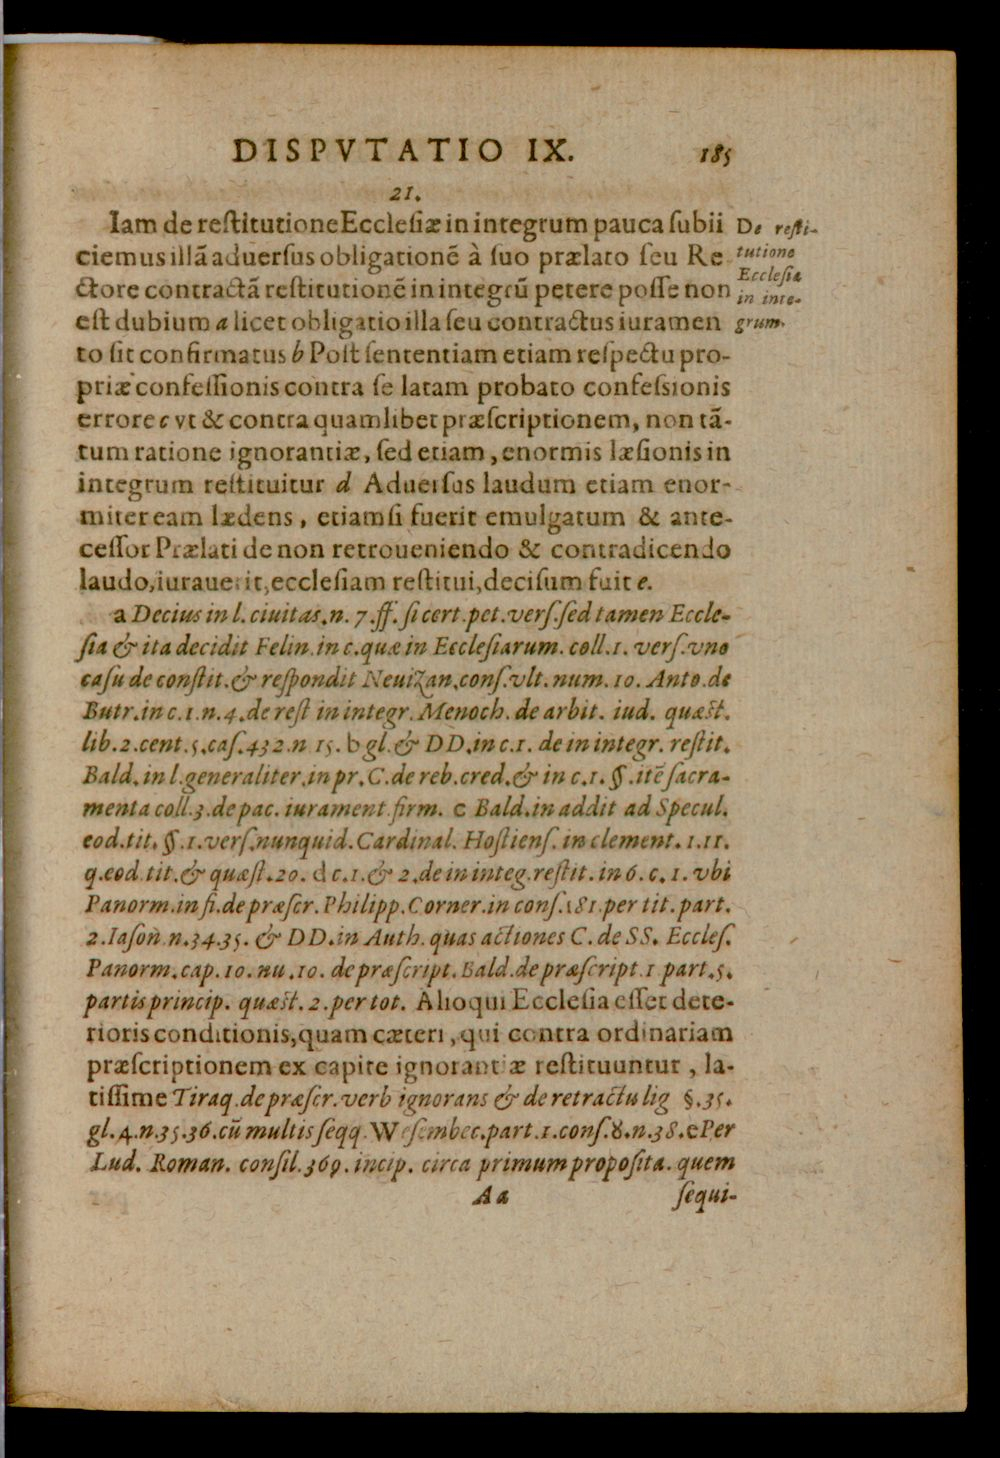 DISPVTATIO IX. 185
21.
Iam de reſtitutione Eccleſiæ in integrum pauca ſubii
ciemus illã aduerſus obligationẽ à ſuo prælato ſeu Re
ctore contractã reſtitutionẽ in integrũ petere poſſe non
eſt dubium a licet obligatio illa ſeu contractus iuramen
to ſit confirmatus b Poſt ſententiam etiam reſpectu pro-
priæ confeſſionis contra ſe latam probato confeſsionis
errore c vt & contra quamlibet præſcriptionem, non tã-
tum ratione ignorantiæ, ſed etiam, enormis læſionis in
integrum reſtituitur d Aduerſus laudum etiam enor-
miter eam lædens, etiamſi fuerit emulgatum & ante-
ceſſor Prælati de non retroueniendo & contradicendo
laudo, iurauerit, eccleſiam reſtitui, deciſum fuit e.
De reſti-
tutione
Eccleſiæ
in inte-
grum.
a Decius in l. ciuitas. n. 7. ff. ſi cert. pet. verſ. ſed tamen Eccle-
ſia & ita decidit Felin. in c. quæ in Eccleſiarum. coll. 1. verſ. vno
caſu de conſtit. & reſpondit Neuizan. conſ. vlt. num. 10. Anto. de
Butr. in c. 1. n. 4. de reſt in integr. Menoch. de arbit. iud. quæſt.
lib. 2. cent. 5. caſ. 432. n 15. b gl. & DD. in c. 1. de in integr. reſtit.
Bald. in l. generaliter. in pr. C. de reb. cred. & in c. 1. §. itẽ ſacra-
menta coll. 3. de pac. iurament. firm. c Bald. in addit ad Specul.
eod. tit. §. 1. verſ. nunquid. Cardinal. Hoſtienſ. in clement. 1. 11.
q. eod. tit. & quæſt. 20. d c. 1. & 2. de in integ. reſtit. in 6. c. 1. vbi
Panorm. in fi. de præſcr. Philipp. Corner. in conſ. 181. per tit. part.
2. Iaſon n. 34. 35. & DD. in Auth. quas actiones C. de SS. Eccleſ.
Panorm. cap. 10. nu. 10. de præſcript. Bald. de præſcript. 1 part. 5.
partis princip. quæſt. 2. per tot. Alioqui Eccleſia eſſet dete-
rioris conditionis, quam cæteri, qui contra ordinariam
præſcriptionem ex capite ignorantiæ reſtituuntur, la-
tiſſime Tiraq. de præſcr. verb ignorans & de retractu lig §. 35.
gl. 4. n. 35. 36. cũ multis ſeqq. Weſembec. part. 1. conſ. 8. n. 38. e Per
Lud. Roman. conſil. 369. incip. circa primum propoſita. quem
Aa ſequi-